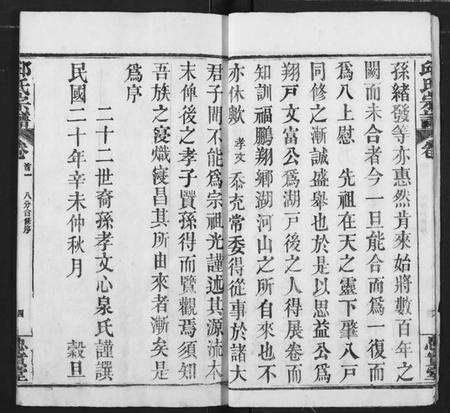 孫緒發等亦惠然肯來始將數百年之
闕而未合者今一旦能合而爲一復而
爲八上慰 先祖在天之靈下肇八戸
同修之漸誠盛舉也於是以思益公爲
翔戸文富公爲湖戸後之人得展卷而
知訓福鵬翔鄉湖河山之所自來也不
亦休歟 孝文 忝充常委得從事於諸大
君子間不能爲宗祖光謹述其源流本
末俾後之孝子賢孫得而覽觀焉須知
吾族之寖熾寖昌其所由來者漸矣是
爲序
二十二世裔孫孝文心泉氏謹譔
民國二十年辛未仲秋月 穀旦
邱氏宗譜 卷首一 八分合修序 四